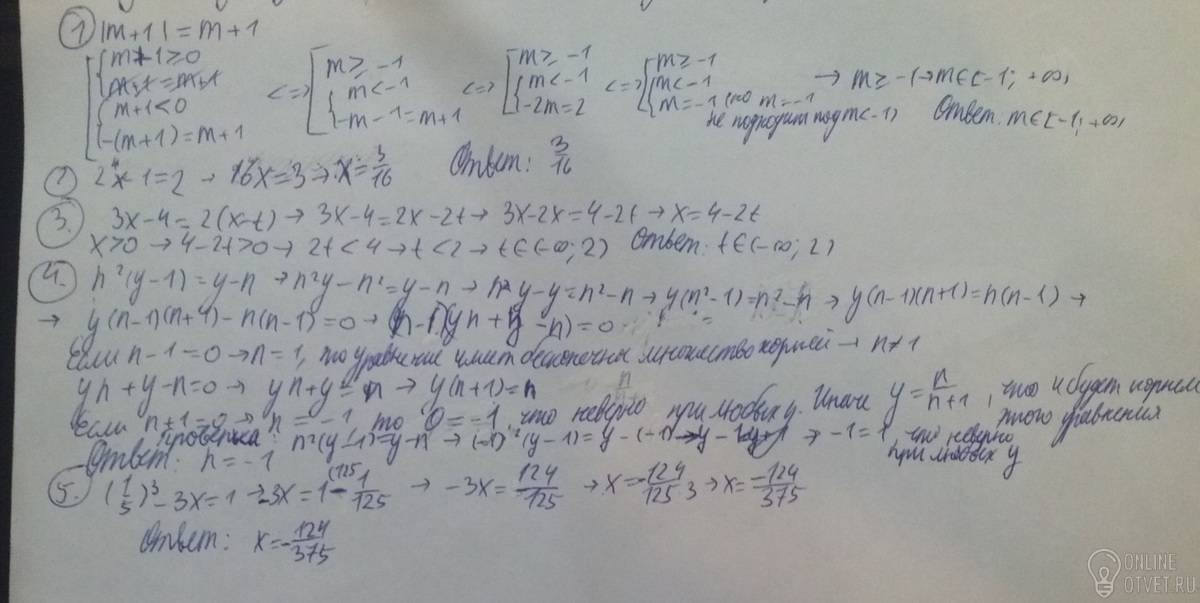 1) |m+1| = m+1
[ { m+1≥0 <=> [ m≥-1 <=> [ m≥-1 <=> [ m≥-1 → m≥-1 → m∈[-1; +∞)
{ m+1=m+1 { m<-1 { m<-1 { m<-1
{ m+1<0 { -m-1=m+1 { -2m=2 { m=-1 (но m=-1
{ -(m+1)=m+1 не подходит под m<-1) Ответ: m∈[-1; +∞)
2) 2⁴x-1=2 → 16x=3 → x=3/16 Ответ: 3/16
3. 3x-4=2(x-t) → 3x-4=2x-2t → 3x-2x=4-2t → x=4-2t
x>0 → 4-2t>0 → 2t<4 → t<2 → t∈(-∞; 2) Ответ: t∈(-∞; 2)
4. n²(y-1)=y-n → n²y-n²=y-n → n²y-y=n²-n → y(n²-1)=n²-n → y(n-1)(n+1)=n(n-1) →
→ y(n-1)(n+1)-n(n-1)=0 → (n-1)(yn+y-n)=0
Если n-1=0 → n=1, то уравнение имеет бесконечн множество корней → n≠1
yn+y-n=0 → yn+y=n → y(n+1)=n
Если n+1=0 → n=-1, то 0=-1, что неверно при любых y. Иначе y=n/n+1, что и будет корнем этого уравнения
проверка: n²(y-1)=y-n → (-1)²(y-1)=y-(-1) → y-1=y+1 → -1=1, что неверно при любых y
Ответ: n=-1
5. (1/5)³-3x=1 → -3x=1-1/125 → -3x=124/125 → x=-124/125·3 → x=-124/375
Ответ: x=-124/375
ONLINE
OTVET.RU